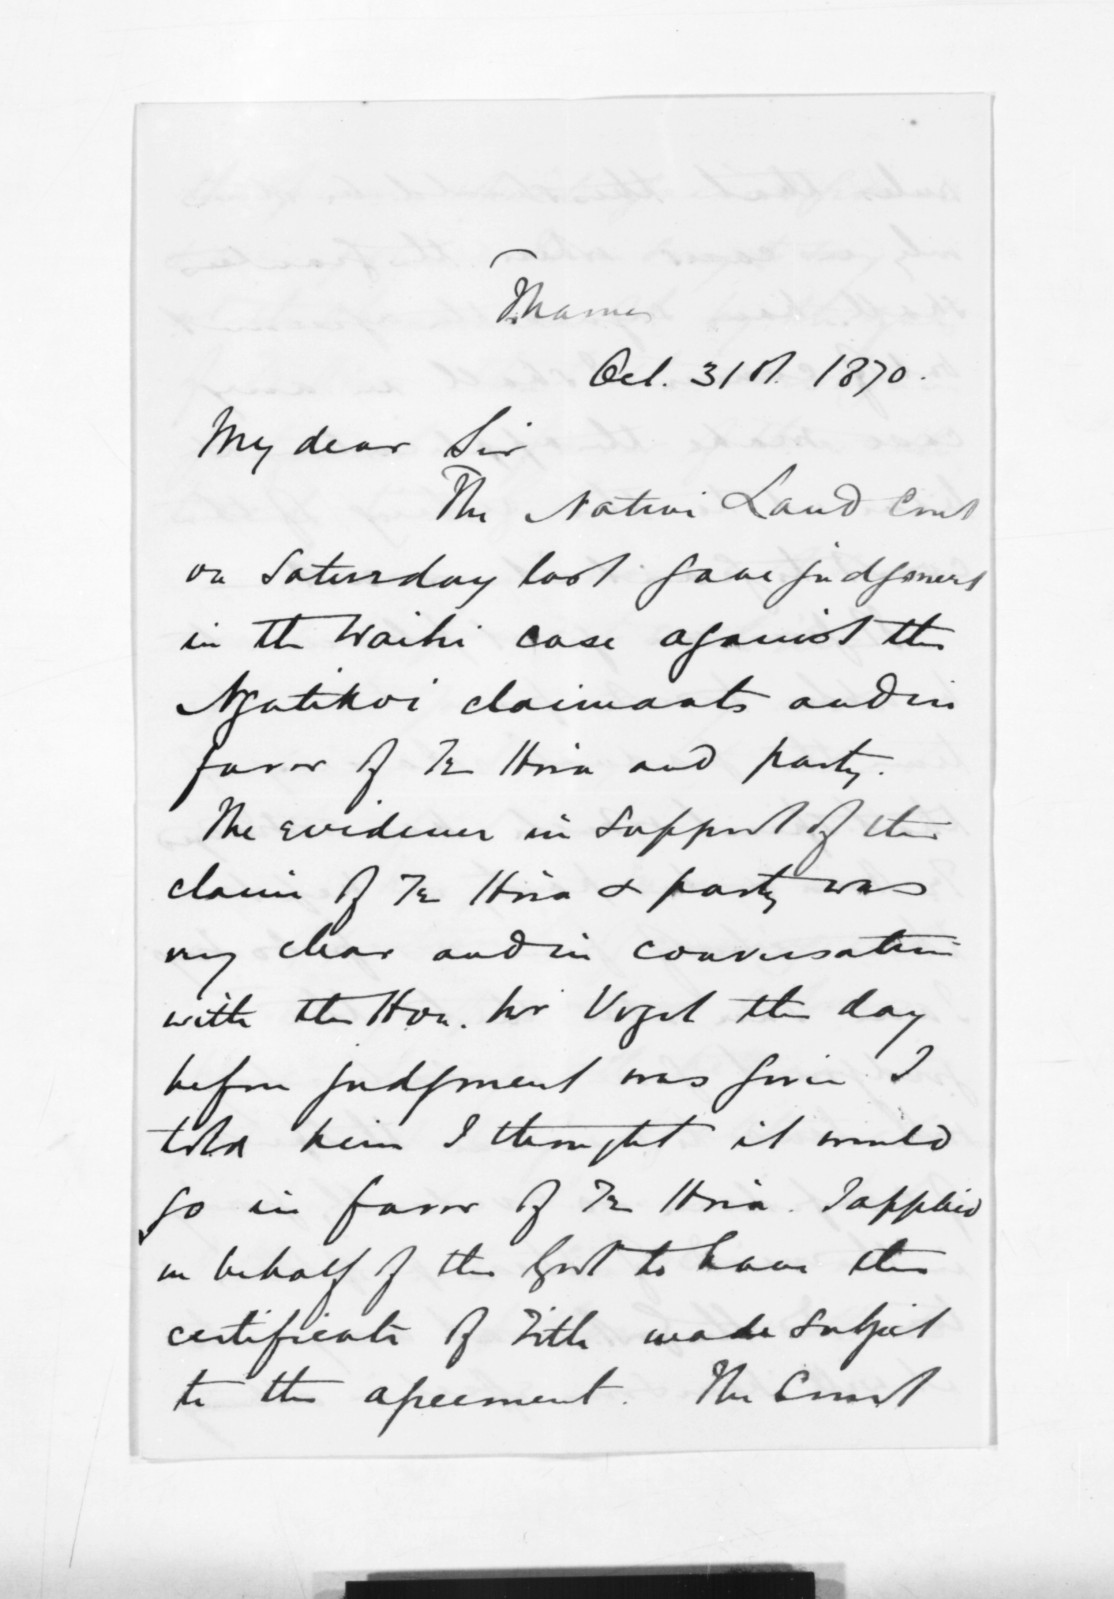 Thames
Oct. 31st. 1870.
My dear Sir
The Native Land Court
on Saturday last gave judgment
in the Waihi case against the
Ngatikoi claimants and in
favor of Te Hira and party.
The evidence in support of the
claim of Te Hira & party was
very clear and in conversation
with the Hon. Mr Vogel the day
before judgment was given I
told him I thought it would
go in favor of Te Hira. I applied
on behalf of the Govt to have the
certificate of Title made subject
to the agreement. The Court